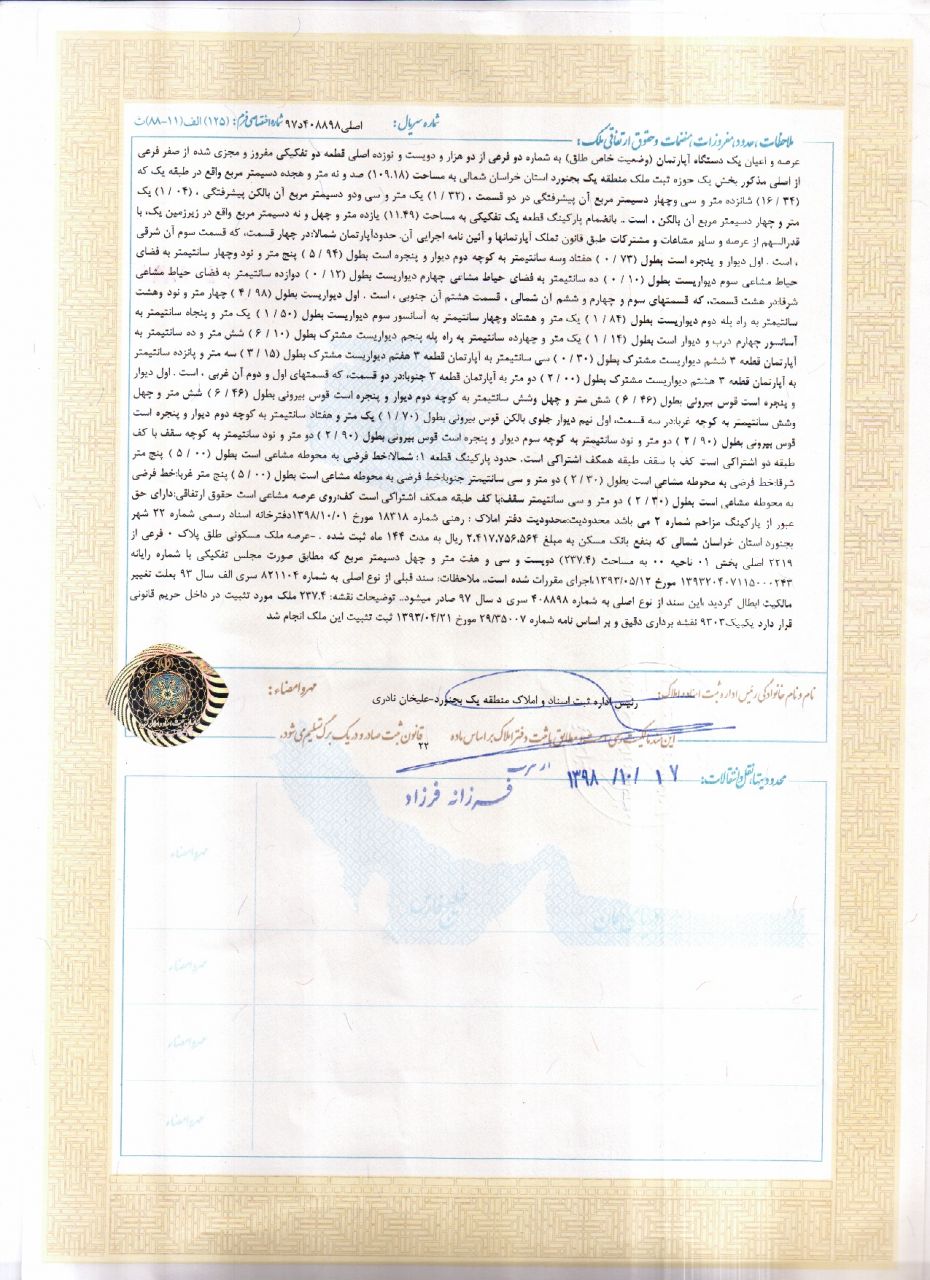 شماره سریال: اصلی۴۰۸۸۹۸د۹۷ شماره اختصاصی فرم: (۱۲۵) الف(۱۱-۸۸)ث
ملاحظات، حدود، مفروزات، منضمات و حقوق ارتفاقی ملک:
عرصه و اعیان یک دستگاه آپارتمان (وضعیت خاص طلق) به شماره دو فرعی از دو هزار و دویست و نوزده اصلی قطعه دو تفکیکی مفروز و مجزی شده از صفر فرعی
از اصلی مذکور بخش یک حوزه ثبت ملک منطقه یک بجنورد استان خراسان شمالی به مساحت (۱۰۹.۱۸) صد و نه متر و هجده دسیمتر مربع واقع در طبقه یک که
(۱۶/۳۴) شانزده متر و سی وچهار دسیمتر مربع آن پیشرفتگی در دو قسمت ، (۱/۳۲) یک متر و سی ودو دسیمتر مربع آن بالکن پیشرفتگی ، (۱/۰۴) یک
متر و چهار دسیمتر مربع آن بالکن ، است .. بانضمام پارکینگ قطعه یک تفکیکی به مساحت (۱۱.۴۹) یازده متر و چهل و نه دسیمتر مربع واقع در زیرزمین یک، با
قدرالسهم از عرصه و سایر مشاعات و مشترکات طبق قانون تملک آپارتمانها و آئین نامه اجرایی آن. حدودآپارتمان شمالا:در چهار قسمت، که قسمت سوم آن شرقی
، است . اول دیوار و پنجره است بطول (۰/۷۳) هفتاد وسه سانتیمتر به کوچه دوم دیوار و پنجره است بطول (۵/۹۴) پنج متر و نود وچهار سانتیمتر به فضای
حیاط مشاعی سوم دیواریست بطول (۰/۱۰) ده سانتیمتر به فضای حیاط مشاعی چهارم دیواریست بطول (۰/۱۲) دوازده سانتیمتر به فضای حیاط مشاعی
شرقا:در هشت قسمت، که قسمتهای سوم و چهارم و ششم آن شمالی ، قسمت هشتم آن جنوبی ، است . اول دیواریست بطول (۴/۹۸) چهار متر و نود وهشت
سانتیمتر به راه پله دوم دیواریست بطول (۱/۸۴) یک متر و هشتاد وچهار سانتیمتر به آسانسور سوم دیواریست بطول (۱/۵۰) یک متر و پنجاه سانتیمتر به
آسانسور چهارم درب و دیوار است بطول (۱/۱۴) یک متر و چهارده سانتیمتر به راه پله پنجم دیواریست مشترک بطول (۶/۱۰) شش متر و ده سانتیمتر به
آپارتمان قطعه ۳ ششم دیواریست مشترک بطول (۰/۳۰) سی سانتیمتر به آپارتمان قطعه ۳ هفتم دیواریست مشترک بطول (۳/۱۵) سه متر و پانزده سانتیمتر
به آپارتمان قطعه ۳ هشتم دیواریست مشترک بطول (۲/۰۰) دو متر به آپارتمان قطعه ۳ جنوبا:در دو قسمت، که قسمتهای اول و دوم آن غربی ، است . اول دیوار
و پنجره است قوس بیرونی بطول (۶/۴۶) شش متر و چهل وشش سانتیمتر به کوچه دوم دیوار و پنجره است قوس بیرونی بطول (۶/۴۶) شش متر و چهل
وشش سانتیمتر به کوچه غربا:در سه قسمت، اول نیم دیوار جلوی بالکن قوس بیرونی بطول (۱/۷۰) یک متر و هفتاد سانتیمتر به کوچه دوم دیوار و پنجره است
قوس بیرونی بطول (۲/۹۰) دو متر و نود سانتیمتر به کوچه سوم دیوار و پنجره است قوس بیرونی بطول (۲/۹۰) دو متر و نود سانتیمتر به کوچه سقف با کف
طبقه دو اشتراکی است کف با سقف طبقه همکف اشتراکی است. حدود پارکینگ قطعه ۱: شمالا:خط فرضی به محوطه مشاعی است بطول (۵/۰۰) پنج متر
شرقا:خط فرضی به محوطه مشاعی است بطول (۲/۳۰) دو متر و سی سانتیمتر جنوبا:خط فرضی به محوطه مشاعی است بطول (۵/۰۰) پنج متر غربا:خط فرضی
به محوطه مشاعی است بطول (۲/۳۰) دو متر و سی سانتیمتر سقف:با کف طبقه همکف اشتراکی است کف:روی عرصه مشاعی است حقوق ارتفاقی:دارای حق
عبور از پارکینگ مزاحم شماره ۲ می باشد محدودیت:محدودیت دفتر املاک : رهنی شماره ۱۸۳۱۸ مورخ ۱۳۹۸/۱۰/۰۱دفترخانه اسناد رسمی شماره ۲۲ شهر
بجنورد استان خراسان شمالی که بنفع بانک مسکن به مبلغ ۲,۴۱۷,۷۵۶,۵۶۴ ریال به مدت ۱۴۴ ماه ثبت شده . -عرصه ملک مسکونی طلق پلاک ۰ فرعی از
۲۲۱۹ اصلی بخش ۰۱ ناحیه ۰۰ به مساحت (۲۳۷.۴) دویست و سی و هفت متر و چهل دسیمتر مربع که مطابق صورت مجلس تفکیکی با شماره رایانه
۱۳۹۳۲۰۴۰۷۱۱۵۰۰۰۲۴۳ مورخ ۱۳۹۳/۰۵/۱۲اجرای مقررات شده است.. ملاحظات: سند قبلی از نوع اصلی به شماره ۸۲۱۱۰۴ سری الف سال ۹۳ بعلت تغییر
مالکیت ابطال گردید ،این سند از نوع اصلی به شماره ۴۰۸۸۹۸ سری د سال ۹۷ صادر میشود.. توضیحات نقشه: ۲۳۷.۴ ملک مورد تثبیت در داخل حریم قانونی
قرار دارد یکبیک۹۳۰۳ نقشه برداری دقیق و بر اساس نامه شماره ۲۹/۳۵۰۰۷ مورخ ۱۳۹۳/۰۴/۲۱ ثبت تثبیت این ملک انجام شد
نام و نام خانوادگی رئیس اداره ثبت اسناد و املاک: رئیس اداره ثبت اسناد و املاک منطقه یک بجنورد-علیخان نادری مهر و امضاء:
این سند مالکیت مطابق با ثبت دفتر املاک بر اساس ماده ۲۲ قانون ثبت صادر و در یک برگ تسلیم می شود.
محدودیتها، نقل و انتقالات: ۱۳۹۸/۱۰/۱۷
فرزانه فرزاد
مهر و امضاء
خلیج فارس
مهر و امضاء
مهر و امضاء
مهر و امضاء